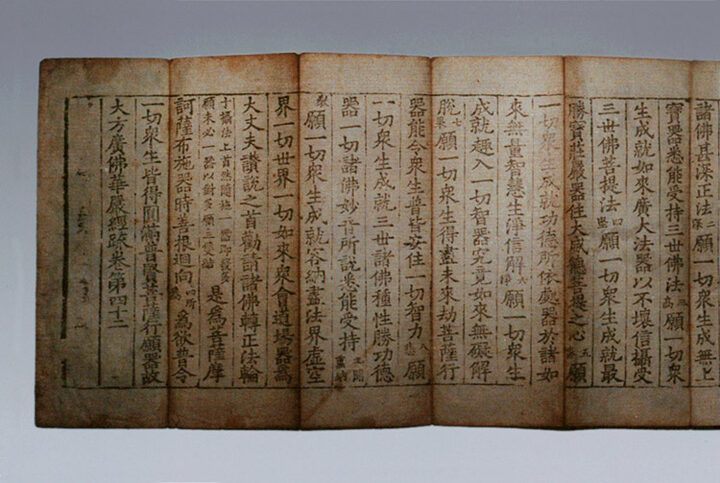 諸佛甚深正法 二 願一切衆生成無上
寶器悉能受持三世佛法 三 願一切衆
生成就如來廣大法器以不壞信攝受
三世佛菩提法 四 願一切衆生成就最
勝寶莊嚴器住大威德菩提之心 五 願
一切衆生成就功德所依處器於諸如
來無量智慧生淨信解 六淨 願一切衆生
成就趣入一切智器究竟如來無礙解
脫 七 願一切衆生得盡未來劫菩薩行
器能令衆生普皆安住一切智力 八 願
一切衆生成就三世諸佛種性勝功德
器一切諸佛妙音所說悉能受持 九聞
願一切衆生成就容納盡法界虛空
界一切世界一切如來衆會道場器爲
大丈夫讚說之首勸請諸佛轉正法輪
十攝法上首然隨施一 是爲菩薩摩
訶薩布施器時善根迴向 四所爲 爲欲普令
一切衆生皆得圓滿普賢菩薩行願器故
大方廣佛華嚴經疏卷第四十二